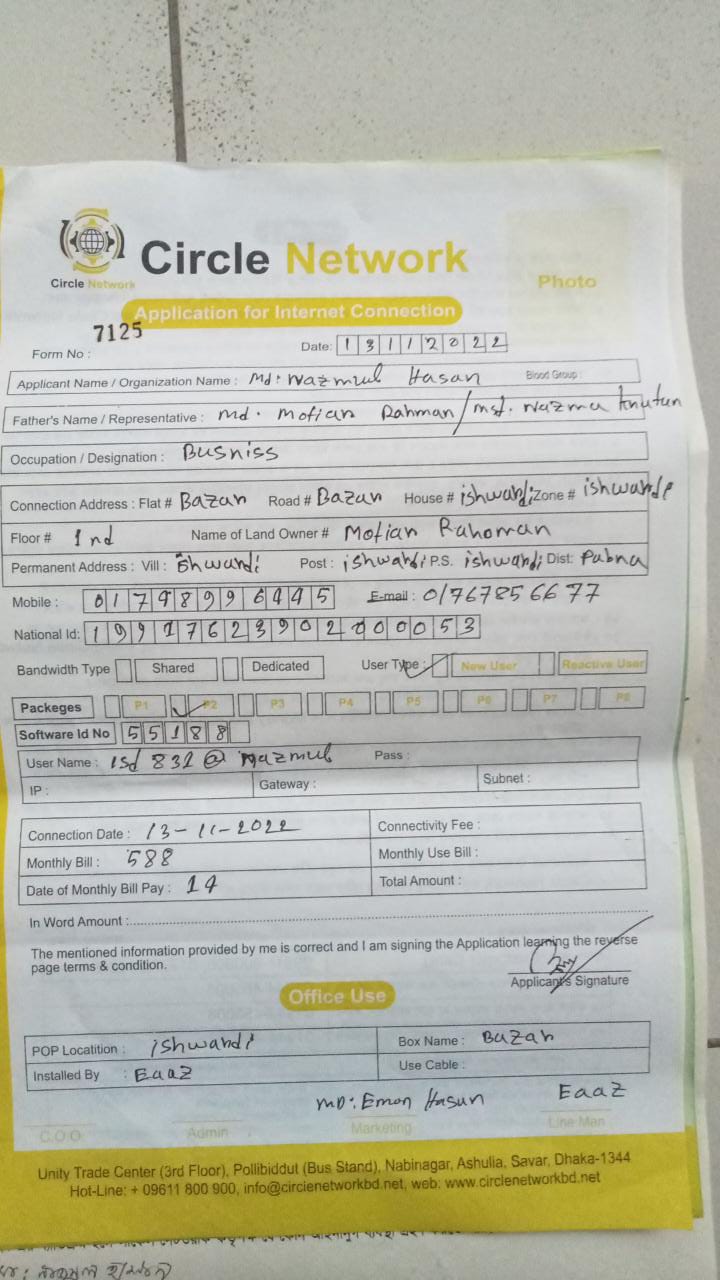 Circle Network
Circle Network
Photo
Application for Internet Connection
Form No : 7125
Date: 13112022
Applicant Name / Organization Name : Md: Nazmul Hasan Blood Group :
Father's Name / Representative : md. Mofian Rahman/mst. Nazma Khutun
Occupation / Designation : Busniss
Connection Address : Flat # Bazar Road # Bazar House # ishwardi Zone # ishwardi
Floor # 1nd Name of Land Owner # Mofian Rahoman
Permanent Address : Vill : Post : ishwardi P.S. ishwardi Dist: Pabna
Mobile : E-mail : 01767856677
National Id:
Bandwidth Type Shared Dedicated User Type : New User Reactive User
Packeges P1 P2 P3 P4 P5 P6 P7 P8
Software Id No 55188
User Name : isd 831 @ Nazmul Pass :
IP : Gateway : Subnet :
Connection Date : 13-11-2022 Connectivity Fee :
Monthly Bill : 588 Monthly Use Bill :
Date of Monthly Bill Pay : 14 Total Amount :
In Word Amount :
The mentioned information provided by me is correct and I am signing the Application learning the reverse
page terms & condition.
Applicant's Signature
Office Use
POP Locatition : ishwardi Box Name : Bazar
Installed By : Eaaz Use Cable :
MD: Emon Hasun Eaaz
C.O.O Admin Marketing Line Man
Unity Trade Center (3rd Floor), Pollibiddut (Bus Stand), Nabinagar, Ashulia, Savar, Dhaka-1344
Hot-Line: + 09611 800 900, info@circlenetworkbd.net, web: www.circlenetworkbd.net